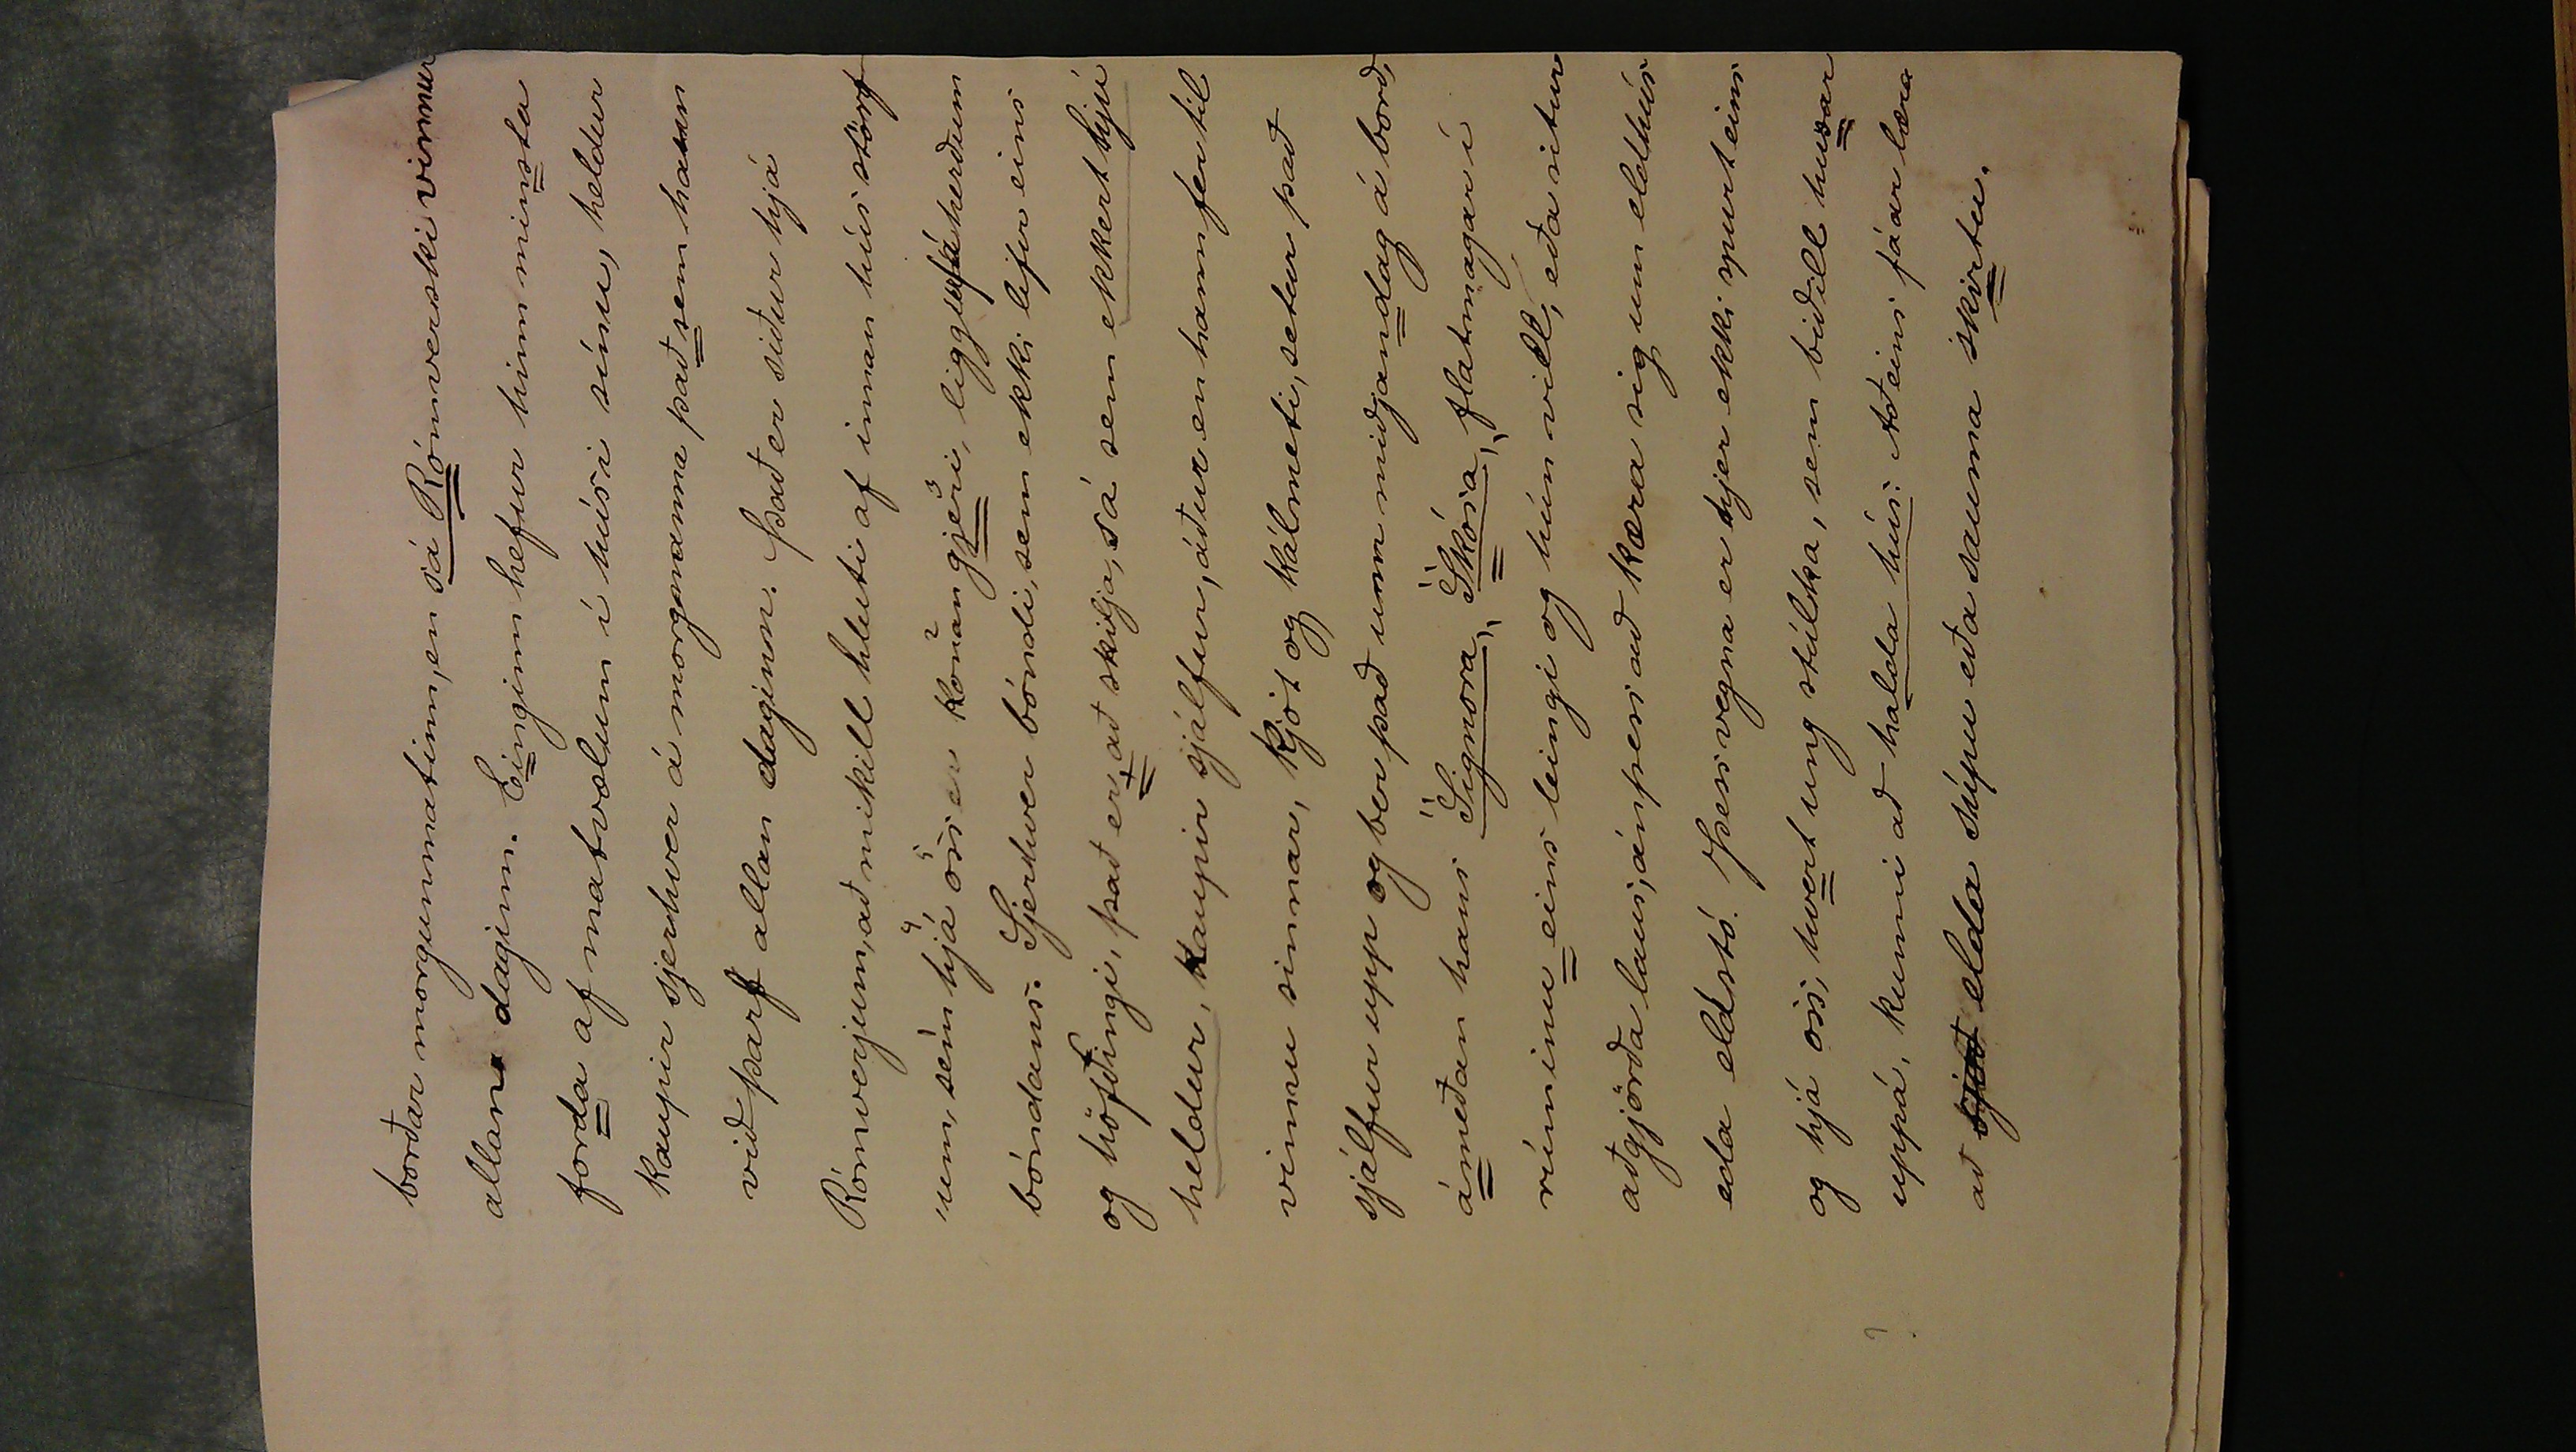 borðar morgunmatinn, en sá Rómverski vinnur
allan daginn. Einginn hefur hinn minsta
forda af matvælum í húsi sínu, heldur
kaupir sjerhver á morgnanna það sem hann
við þarf allan daginn. Það er siður hjá
Rómverjum, að mikill hluti af innan hús störf
um, sem hjá oss er konan gjeri, liggur á herðum
bóndans. Sjerhver bóndi, sem ekki lifir eins
og höfðingi, það er að skilja, sá sem ekkert hjú
heldur, kaupir sjálfur, áður en hann fer til
vinnu sinnar, kjöt og kálmeti, setur það
sjálfur upp og ber það um miðjan dag á borð,
ámeðan hans "Signora," "Skósa," flatmagar í
rúminu eins leingi og hún vill, eða situr
aðgjörða laus, án þess að kæra sig um eldhús
eda eldstó. Þess vegna er hjer ekki spurt eins
og hjá oss, hvert ung stúlka, sem biðill huvar
uppá, kunni að halda hús: Aðeins fáar læra
að elda súpu eða sauma skirtu.